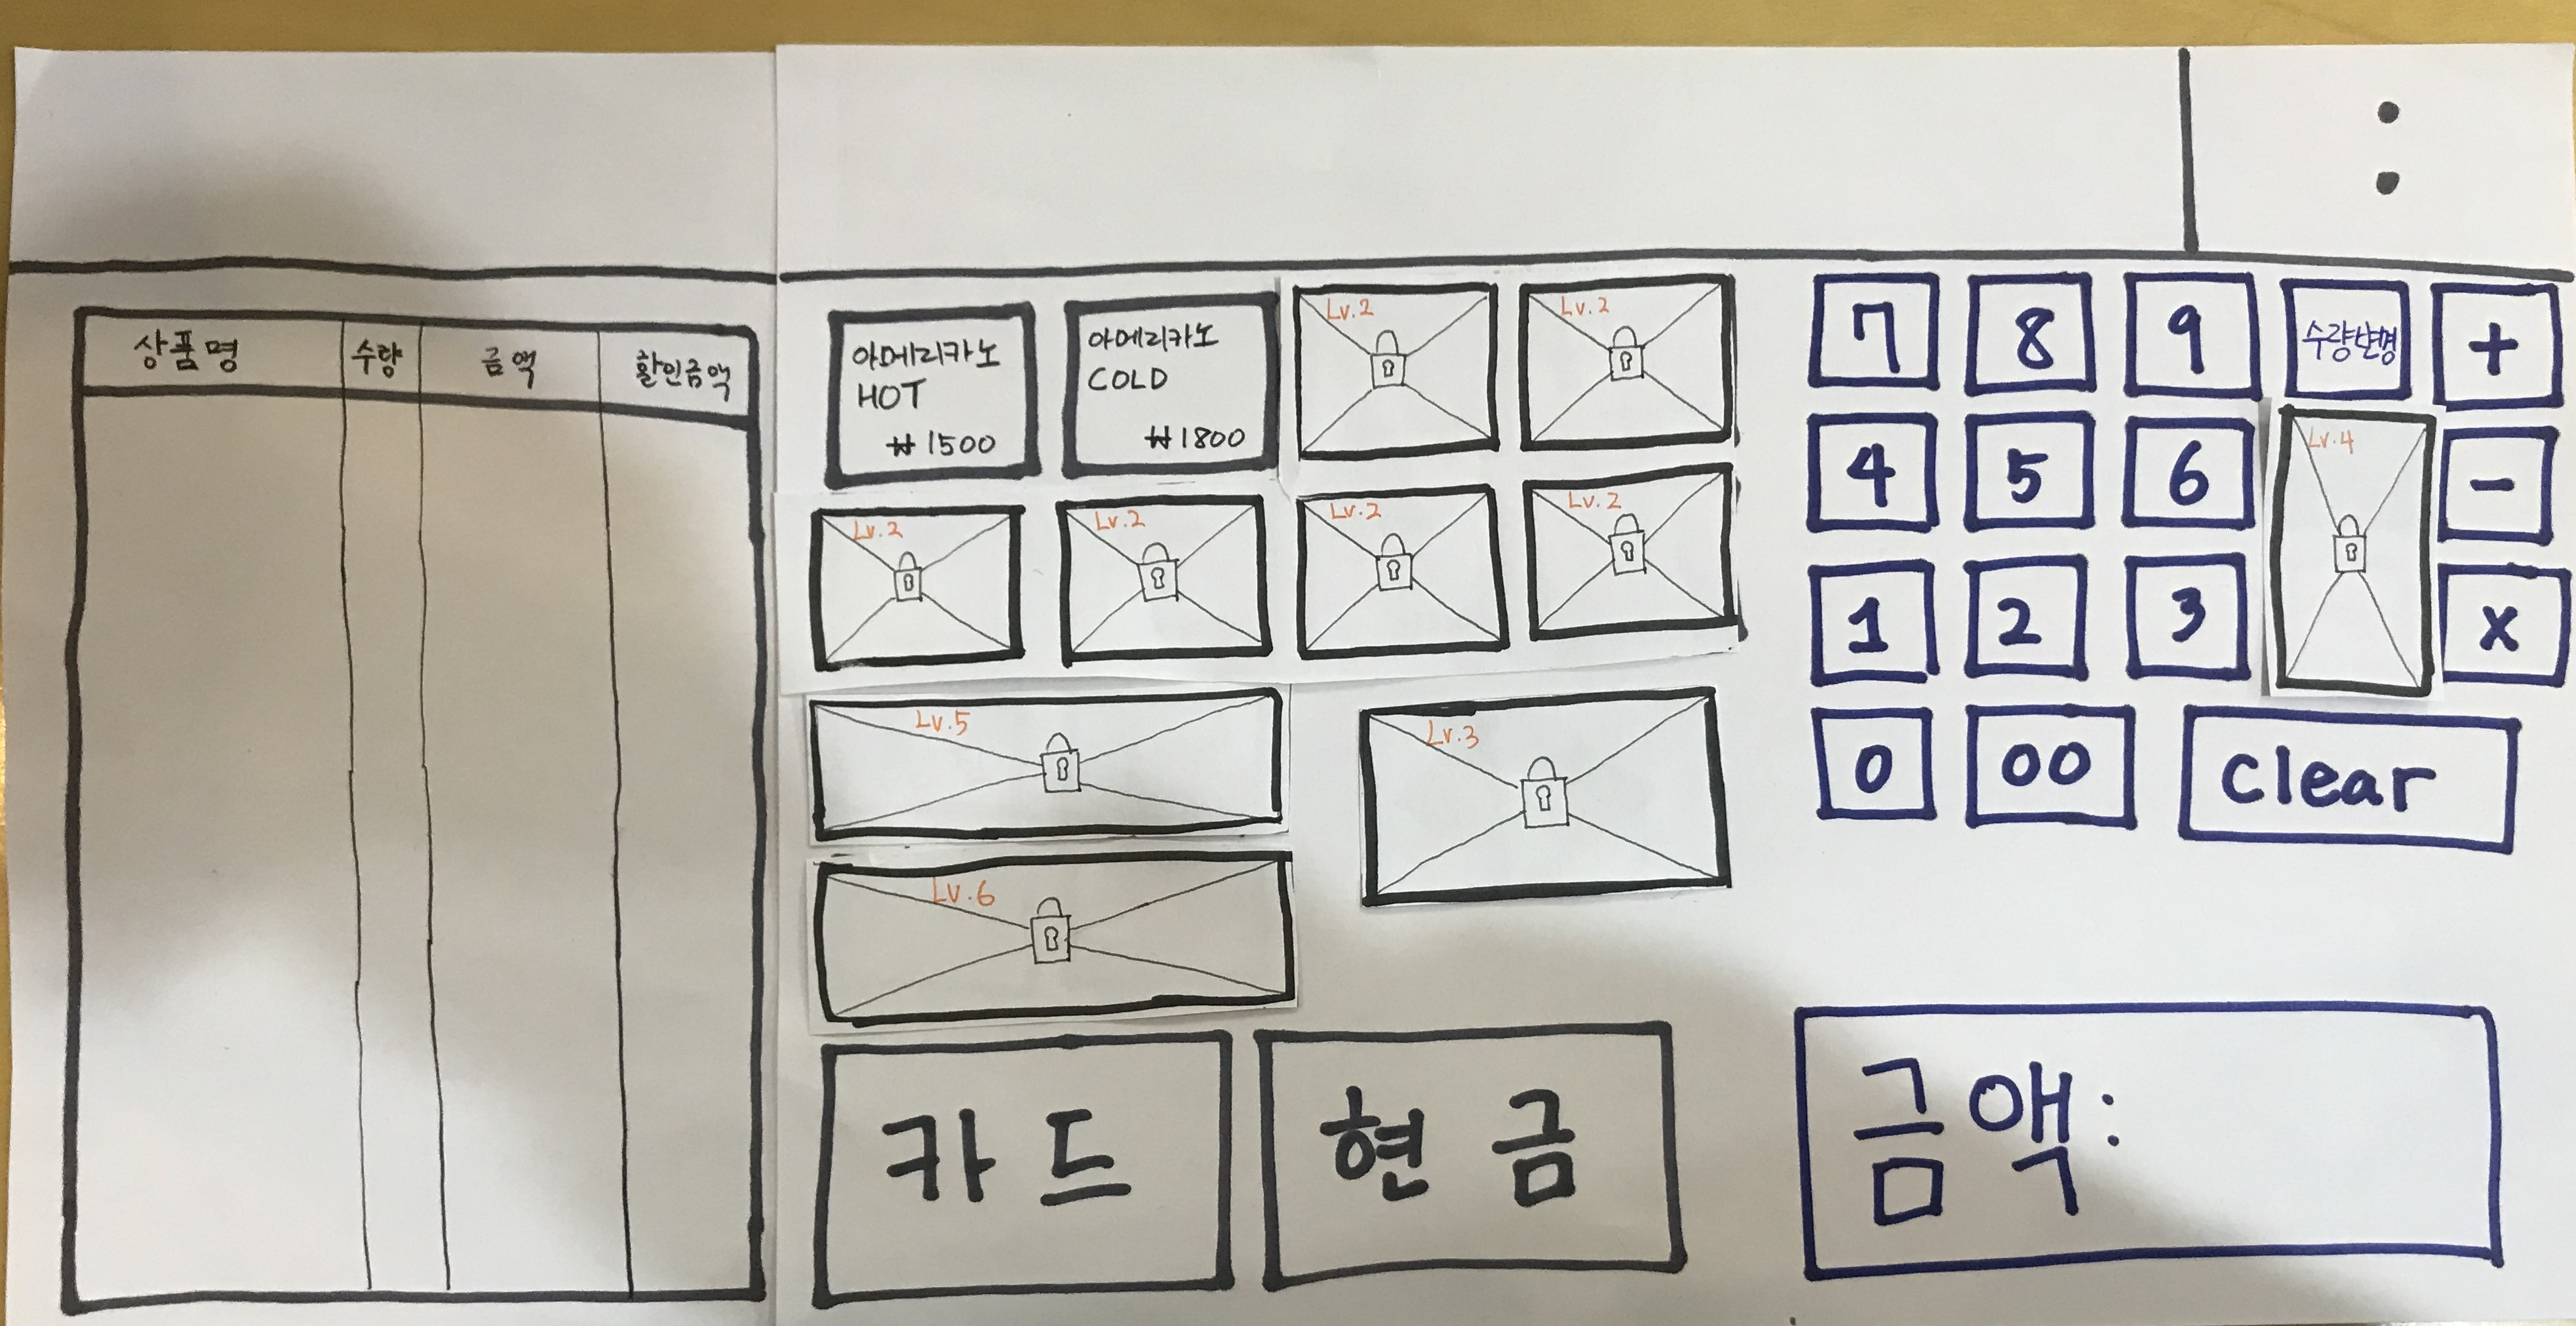 상품명 수량 금액 할인금액
아메리카노
HOT
₩1500
아메리카노
COLD
₩1800
Lv.2
Lv.2
Lv.2
Lv.2
Lv.2
Lv.2
Lv.5
Lv.3
Lv.6
카드
현금
7 8 9 +
4 5 6 -
Lv.4
1 2 3 x
0 00 clear
금액: